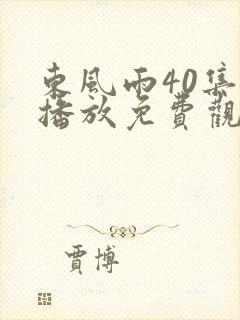 東風雨40集
播放免費觀
賈博